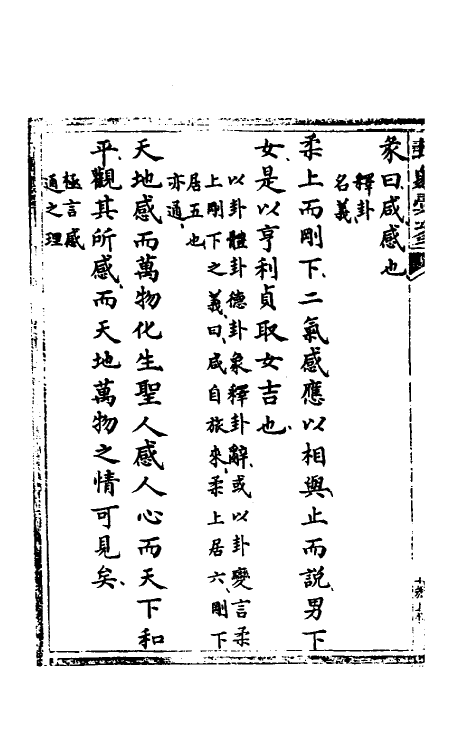 彖曰咸感也
釋卦
名義
柔上而剛下二氣感應以相與止而說男下
女是以亨利貞取女吉也
以卦體卦德卦象釋卦辭或以卦變言柔
上剛下之義曰咸自旅來柔上居六剛下
居五也
亦通
天地感而萬物化生聖人感人心而天下和
平觀其所感而天地萬物之情可見矣
極言感
通之理